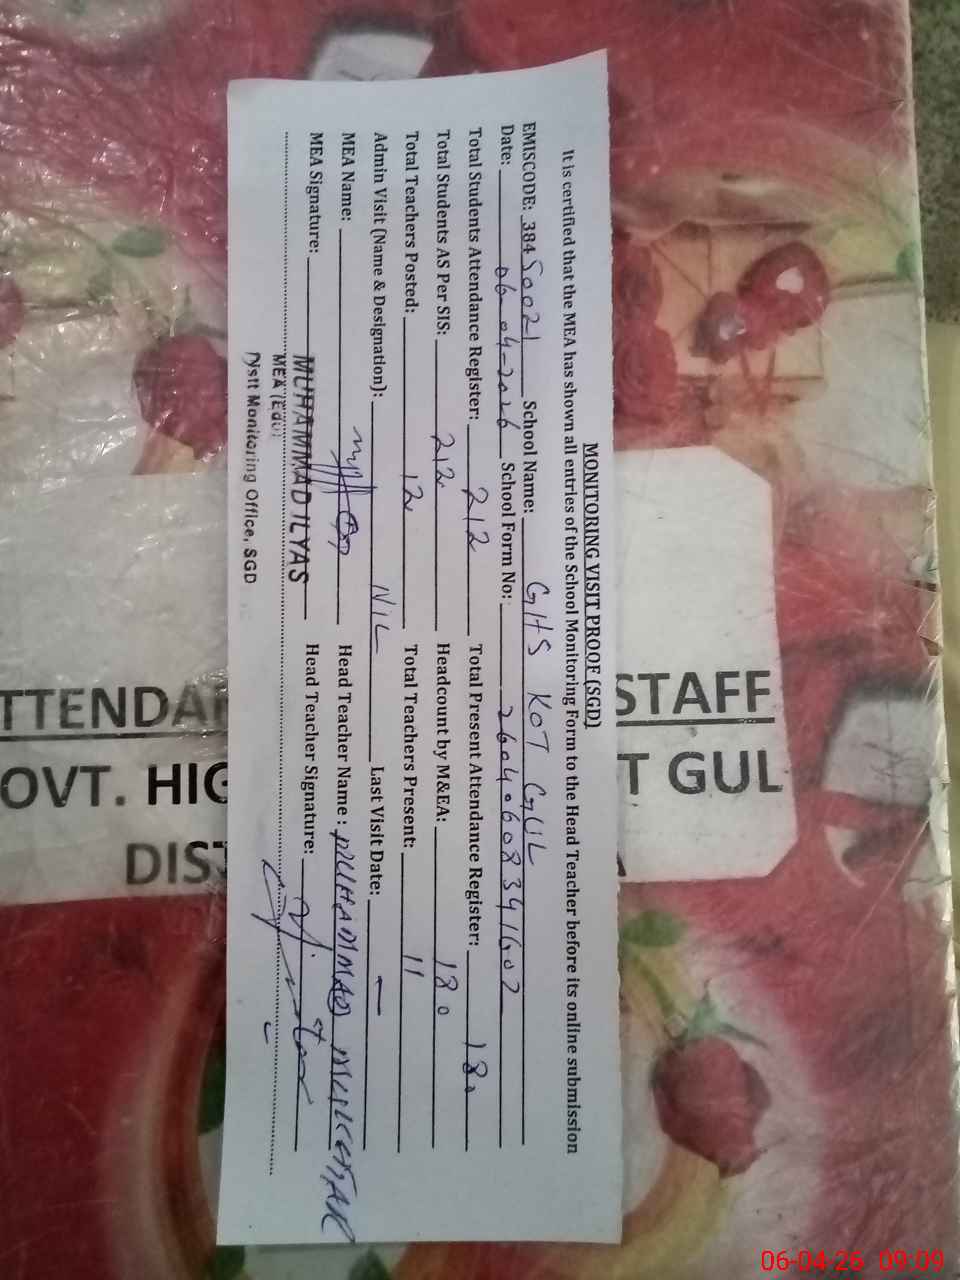 MONITORING VISIT PROOF (SGD)
It is certified that the MEA has shown all entries of the School Monitoring Form to the Head Teacher before its online submission
EMISCODE: 38450021 School Name: GHS KOT GUL
Date: 06-04-2026 School Form No: 26040608341607
Total Students Attendance Register: 212 Total Present Attendance Register: 180
Total Students AS Per SIS: 212 Headcount by M&EA: 180
Total Teachers Posted: 12 Total Teachers Present: 11
Admin Visit (Name & Designation): NIL Last Visit Date: —
MEA Name: Head Teacher Name : MUHAMMAD
MEA Signature: MUHAMMAD ILYAS Head Teacher Signature:
MEA (Edu)
Distt Monitoring Office, SGD
TTENDA STAFF
OVT. HIG T GUL
DIS A
06-04-26 09:09